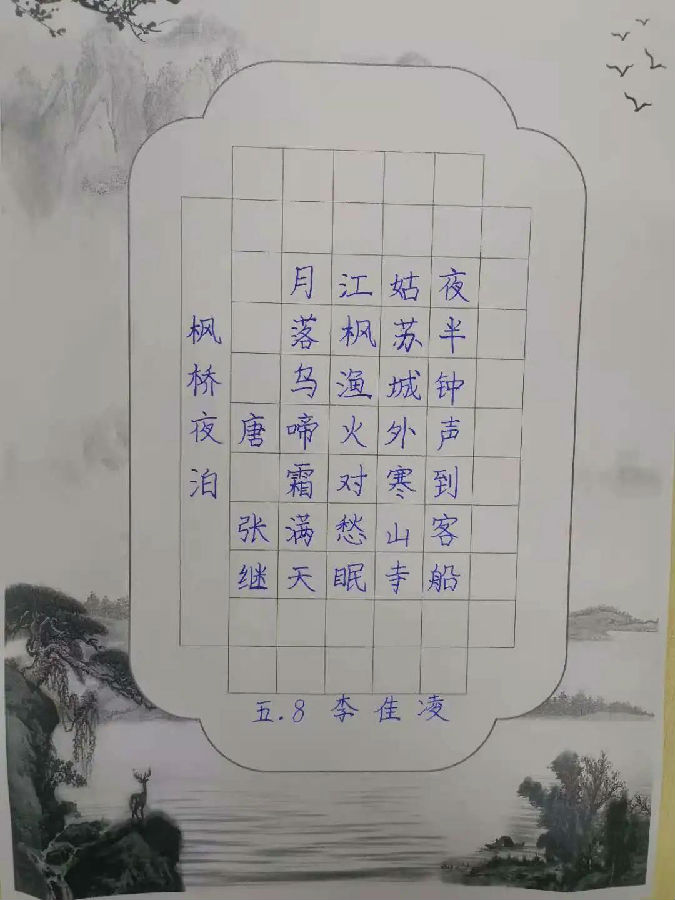 枫桥夜泊
唐 张继
月落乌啼霜满天
江枫渔火对愁眠
姑苏城外寒山寺
夜半钟声到客船
五.8 李佳凌